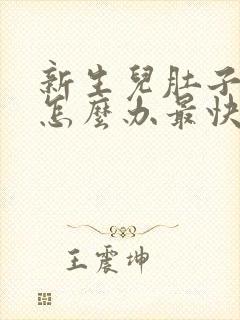 新生兒肚子
怎麼办最快
王震坤